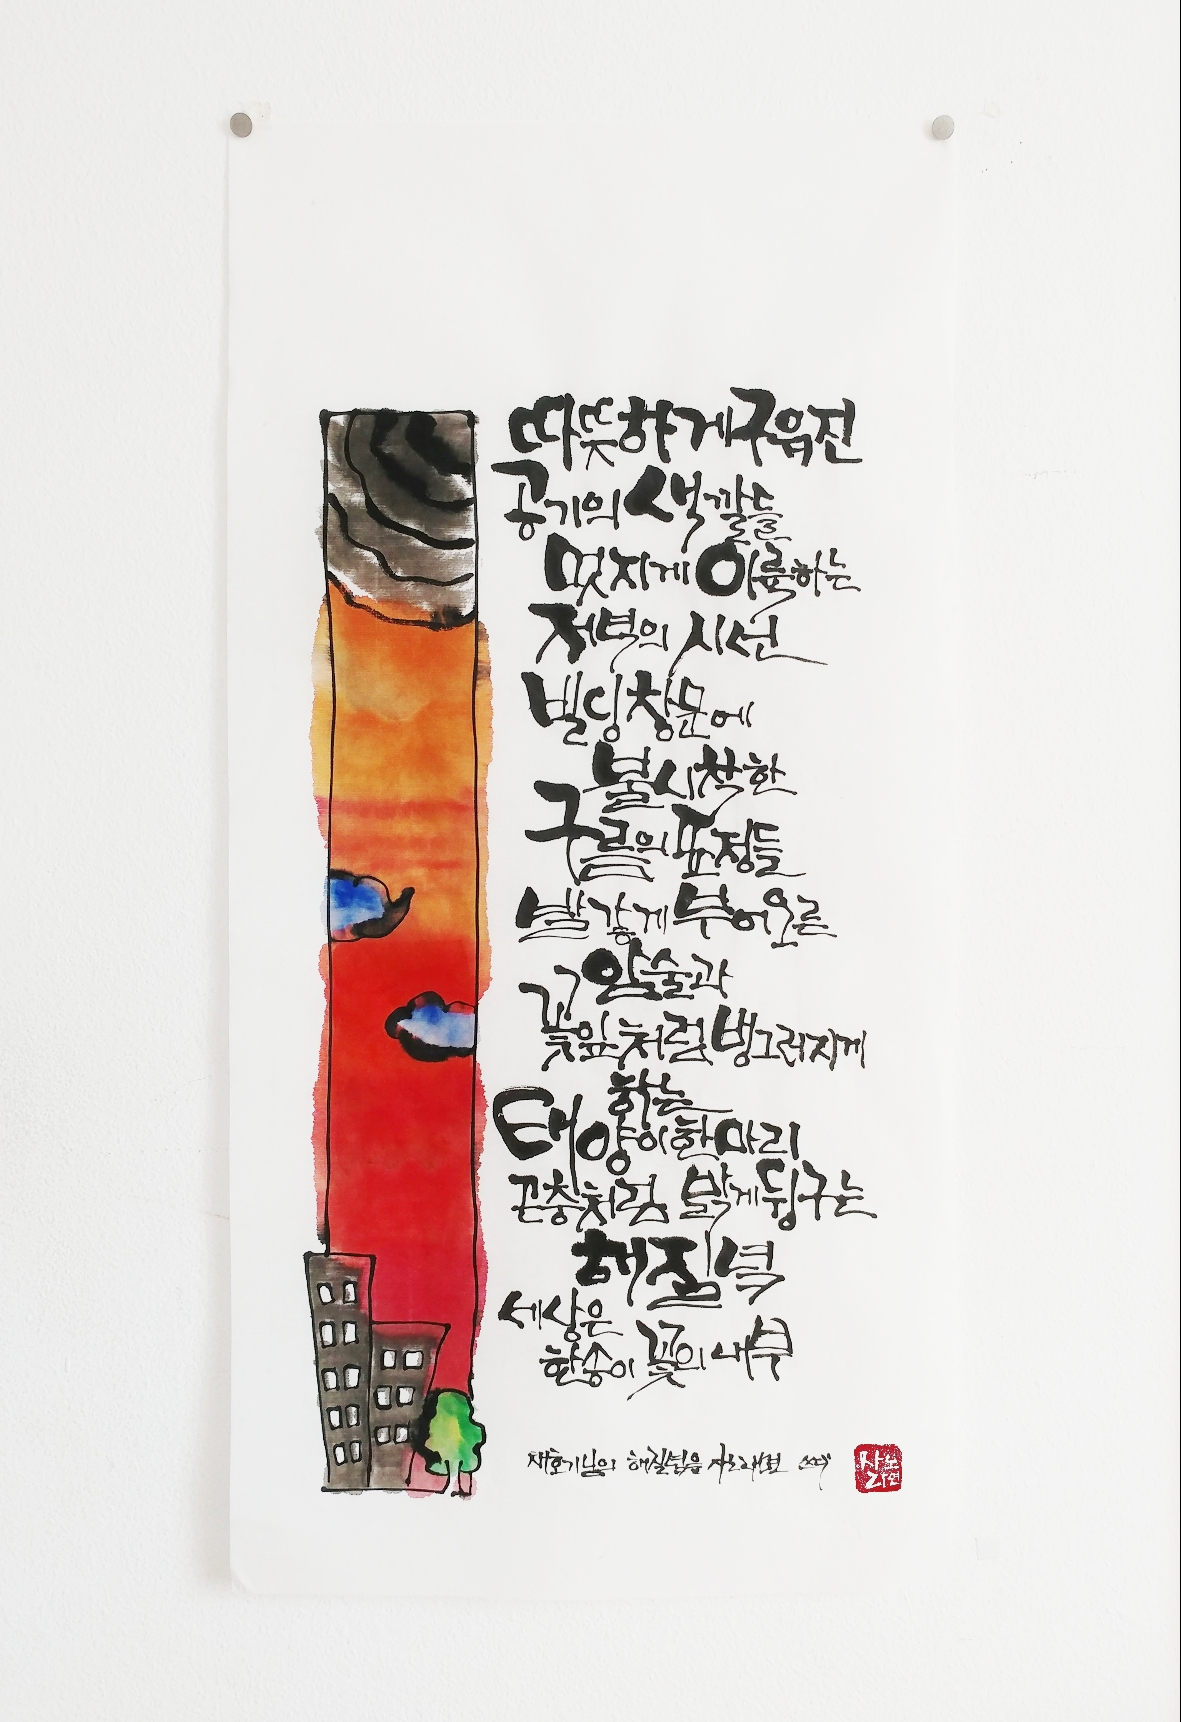 따뜻하게 구워진
공기의 색깔들
멋지게 이륙하는
저녁의 시선
빌딩 창문에
불시착한
구름의 표정들
발갛게 부어오른
암술과
꽃잎처럼 벙그러지게
하는
태양이 한 마리
곤충처럼 밝게 뒹구는
해질녘
세상은
한 송이 꽃의 내부
채호기님의 해질녘을